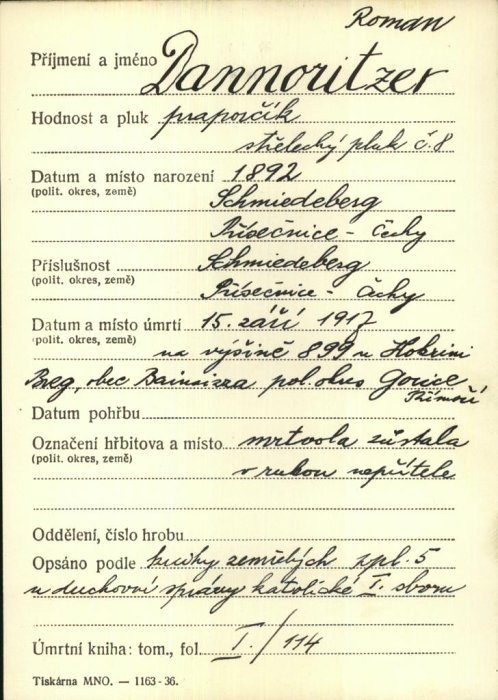 Roman
Příjmení a jméno Dannoritzer
Hodnost a pluk praporčík
střelecký pluk č. 8
Datum a místo narození 1892
(polit. okres, země) Schmiedeberg
Přísečnice - Čechy
Příslušnost Schmiedeberg
(polit. okres, země) Přísečnice - Čechy
Datum a místo úmrtí 15. září 1917
(polit. okres, země) na výšině 899 u Hokrini
Breg, obec Bainsizza pol. okres Gorice
Přímoří
Datum pohřbu
Označení hřbitova a místo mrtvola zůstala
(polit. okres, země) v rukou nepřítele
Oddělení, číslo hrobu
Opsáno podle knihy zemřelých zpl. 5
u duchovní správy katolické I. sboru
Úmrtní kniha: tom., fol. I. / 114
Tiskárna MNO. — 1163-36.